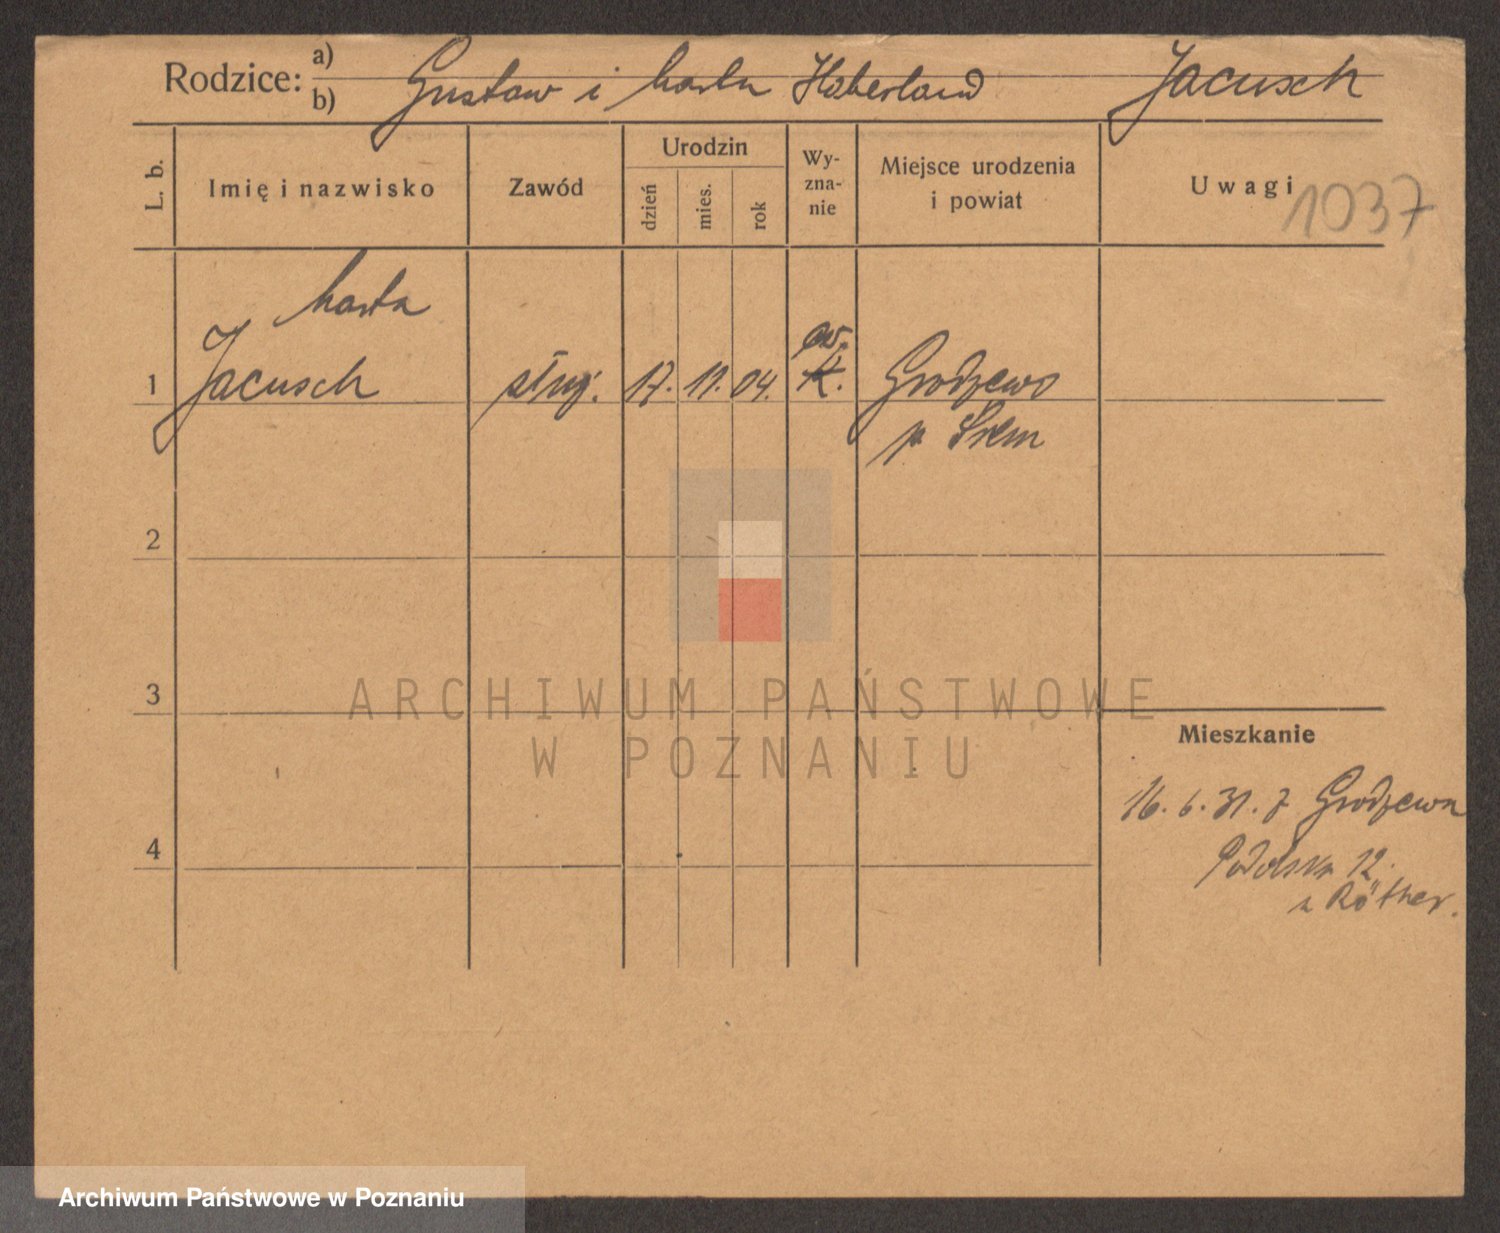 Rodzice: a) b) Gustaw i Marta Haberland Jacusch
L. b. Imię i nazwisko Zawód Urodzin dzień mies. rok Wy-zna-nie Miejsce urodzenia i powiat Uwagi 1037
Marta
1 Jacusch służ. 17. 11. 04. ew. K. Grodzewo
p Śrem
2
3
4
Mieszkanie
16. 6. 31. z Grodzewa
Podolska 12.
u Röther.
ARCHIWUM PAŃSTWOWE
W POZNANIU
Archiwum Państwowe w Poznaniu